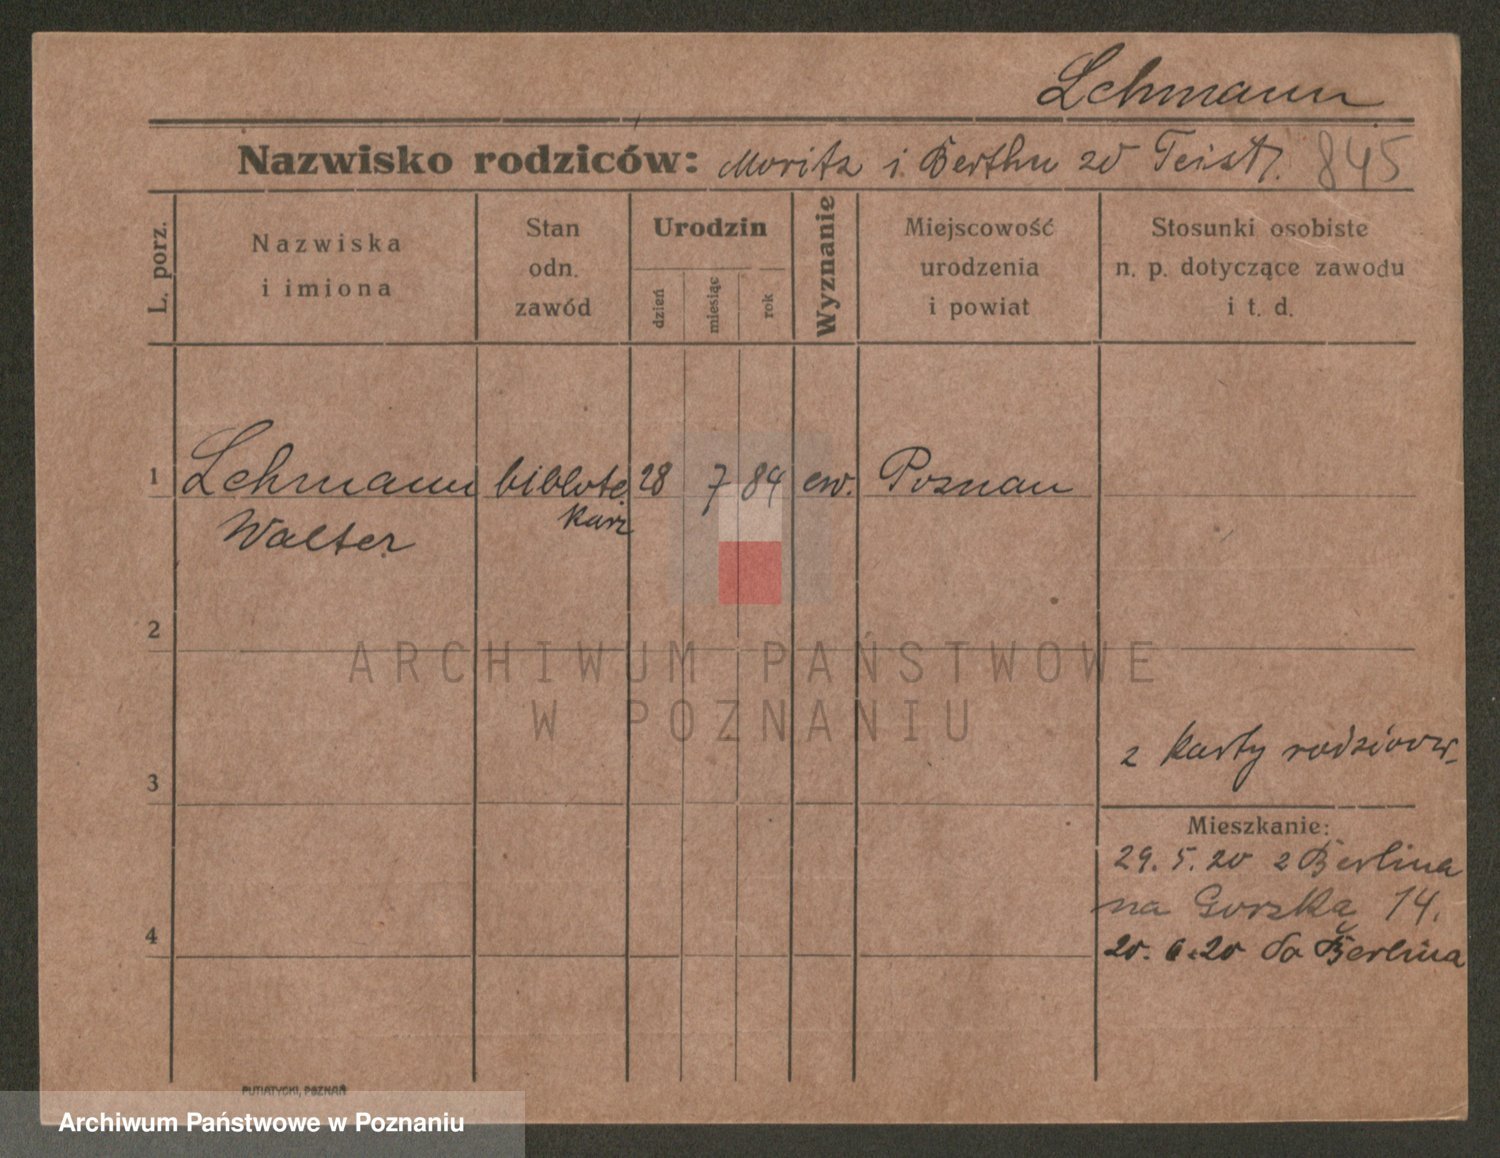 Lehmann
Nazwisko rodziców: Moritz i Bertha zd Teist. 845
L. porz.
Nazwiska
i imiona
Stan
odn.
zawód
Urodzin
dzień
miesiąc
rok
Wyznanie
Miejscowość
urodzenia
i powiat
Stosunki osobiste
n. p. dotyczące zawodu
i t. d.
1 Lehmann bibliote 28 7 84 ew. Poznan
Walter karz
2
ARCHIWUM PAŃSTWOWE
W POZNANIU
z karty rodzicow.
3
Mieszkanie:
29. 5. 20 z Berlina
na Gorzką 14.
4
20. 6. 20 do Berlina
PUTIATYCKI, POZNAŃ
Archiwum Państwowe w Poznaniu